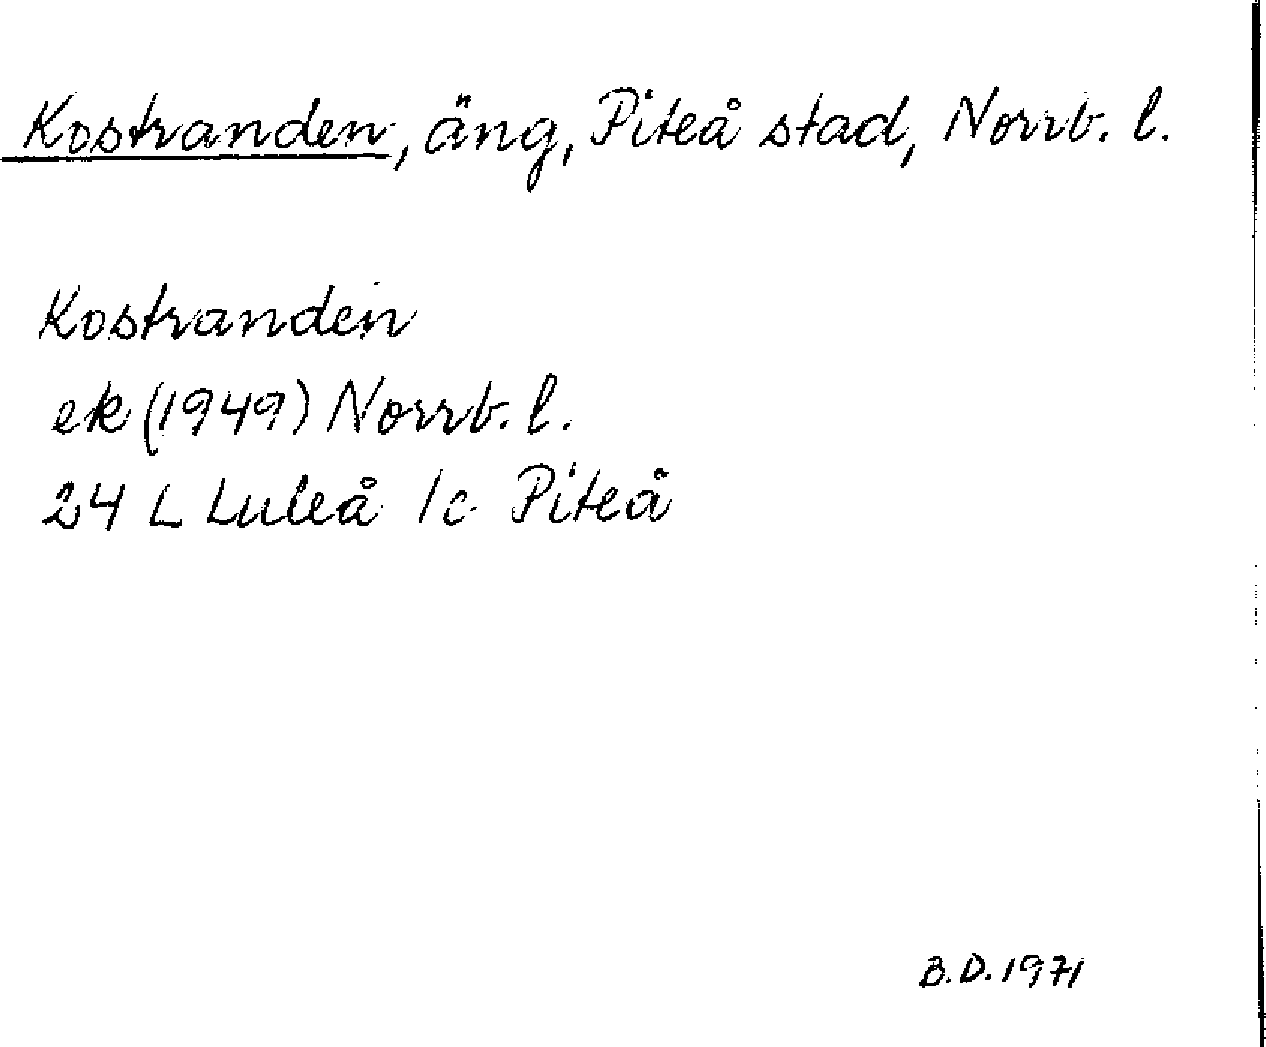 Kostranden, äng, Piteå stad, Norrb. l.
Kostranden
ek (1949) Norrb. l.
24 L Luleå 1c Piteå
B.D. 1971